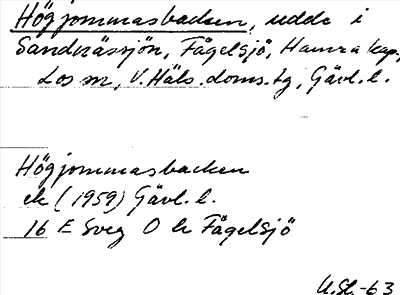 Högjommasbacken, udde i
Sandnässjön, Fågelsjö, Hamra kap,
Los sn, V. Häls. doms.tg, Gävl. l.
Högjommasbacken
ek (1959) Gävl. l.
16 E Sveg O h Fågelsjö
U.St.-63